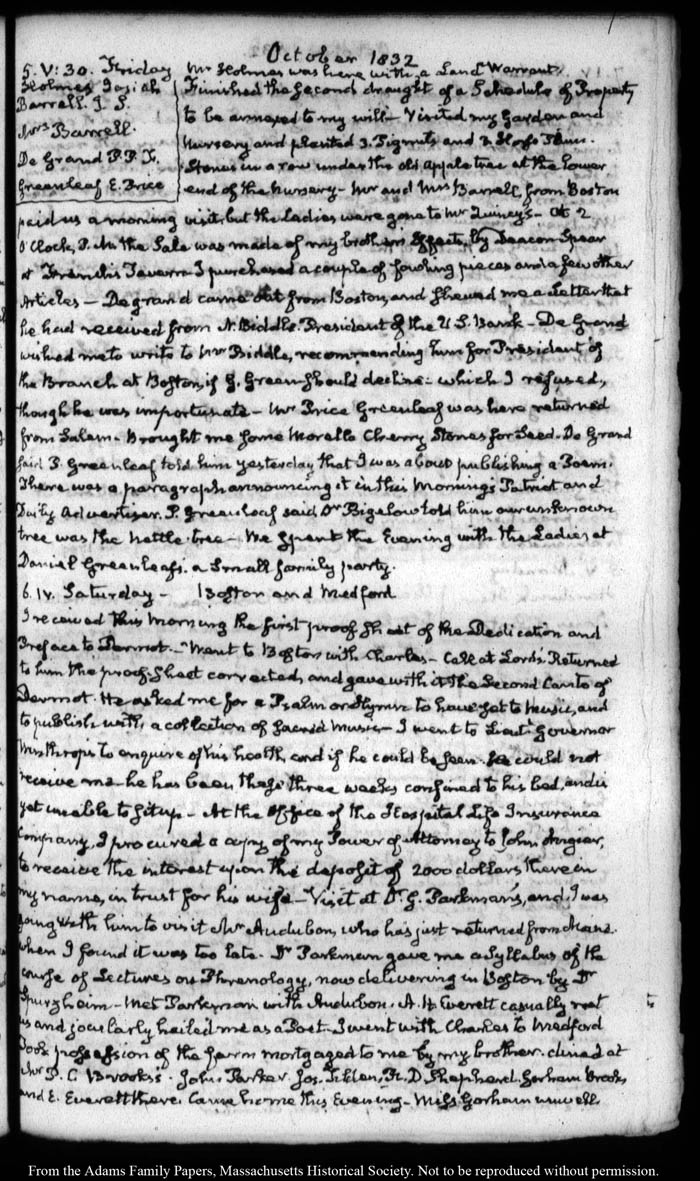 October 1832
5. V: 30. Friday Mr Holmes was here with a Land Warrant.
Holmes Josiah
Barrell. J S.
Mrs Barrell.
De Grand P. P. F.
Greenleaf E. Price
Finished the second draught of a Schedule of Property
to be annexed to my will. Visited my Garden and
Nursery and planted 3. Pignuts and 2 Horse Plum.
Stones in a row under the old apple tree at the lower
end of the Nursery— Mr and Mrs Barrell, from Boston
paid us a morning visit, but the Ladies were gone to Mr Quincy's— At 2
O'Clock, P. M. the Sale was made of my brothers Effects, by Deacon Spear
at French's Tavern. I purchased a couple of fowling pieces and a few other
Articles— Degrand came out from Boston, and shewed me a Letter that
he had received from N. Biddle. President of the U S. Bank— De Grand
wished me to write to Mr Biddle, recommending him for President of
the Branch at Boston, if G. Green should decline— which I refused,
though he was importunate— Mr Price Greenleaf was here returned
from Salem. Brought me some Morello Cherry Stones for Seed. De Grand
said P. Greenleaf told him yesterday that I was about publishing a Poem.
There was a paragraph announcing it in this Morning's Patriot and
Daily Advertiser. P. Greenleaf said Dr Bigelow told him our unknown
tree was the nettle-tree— We spent the Evening with the Ladies at
Daniel Greenleaf's. a small family party.
6. IV. Saturday— Boston and Medford
I received this Morning the first proof sheet of the Dedication and
Preface to Dermot.— Went to Boston with Charles— Call at Lord's. Returned
to him the proof-sheet corrected, and gave with it the Second Canto of
Dermot. He asked me for a Psalm or Hymn to have set to Music, and
to publish with a collection of sacred Music— I went to Lieut. Governor
Winthrop's to enquire of his health, and if he could be seen. He could not
receive me— he has been these three weeks confined to his bed, and is
yet unable to sit up— At the Office of the Hospital Life Insurance
Company, I procured a copy of my Power of Attorney to John Angier,
to receive the interest upon the deposit of 2000 dollars there in
my name, in trust for his wife— Visit at Dr G. Parkman's, and I was
going with him to visit Mr Audubon, who has just returned from
when I found it was too late. Dr Parkman gave me a Syllabus of the
course of Lectures on Phrenology, now delivering in Boston by Dr
Spurzheim— Met Parkman with Audubon. A. H. Everett casually met
us and jocularly hailed me as a Poet. I went with Charles to Medford
Took possession of the farm mortgaged to me by my brother. dined at
Mr P. C Brooks's. John Parker. Jos. Tilden, R. D. Shepherd. Gorham Brooks,
and E. Everett there. Came home this Evening— Miss Gorham unwell.
From the Adams Family Papers, Massachusetts Historical Society. Not to be reproduced without permission.